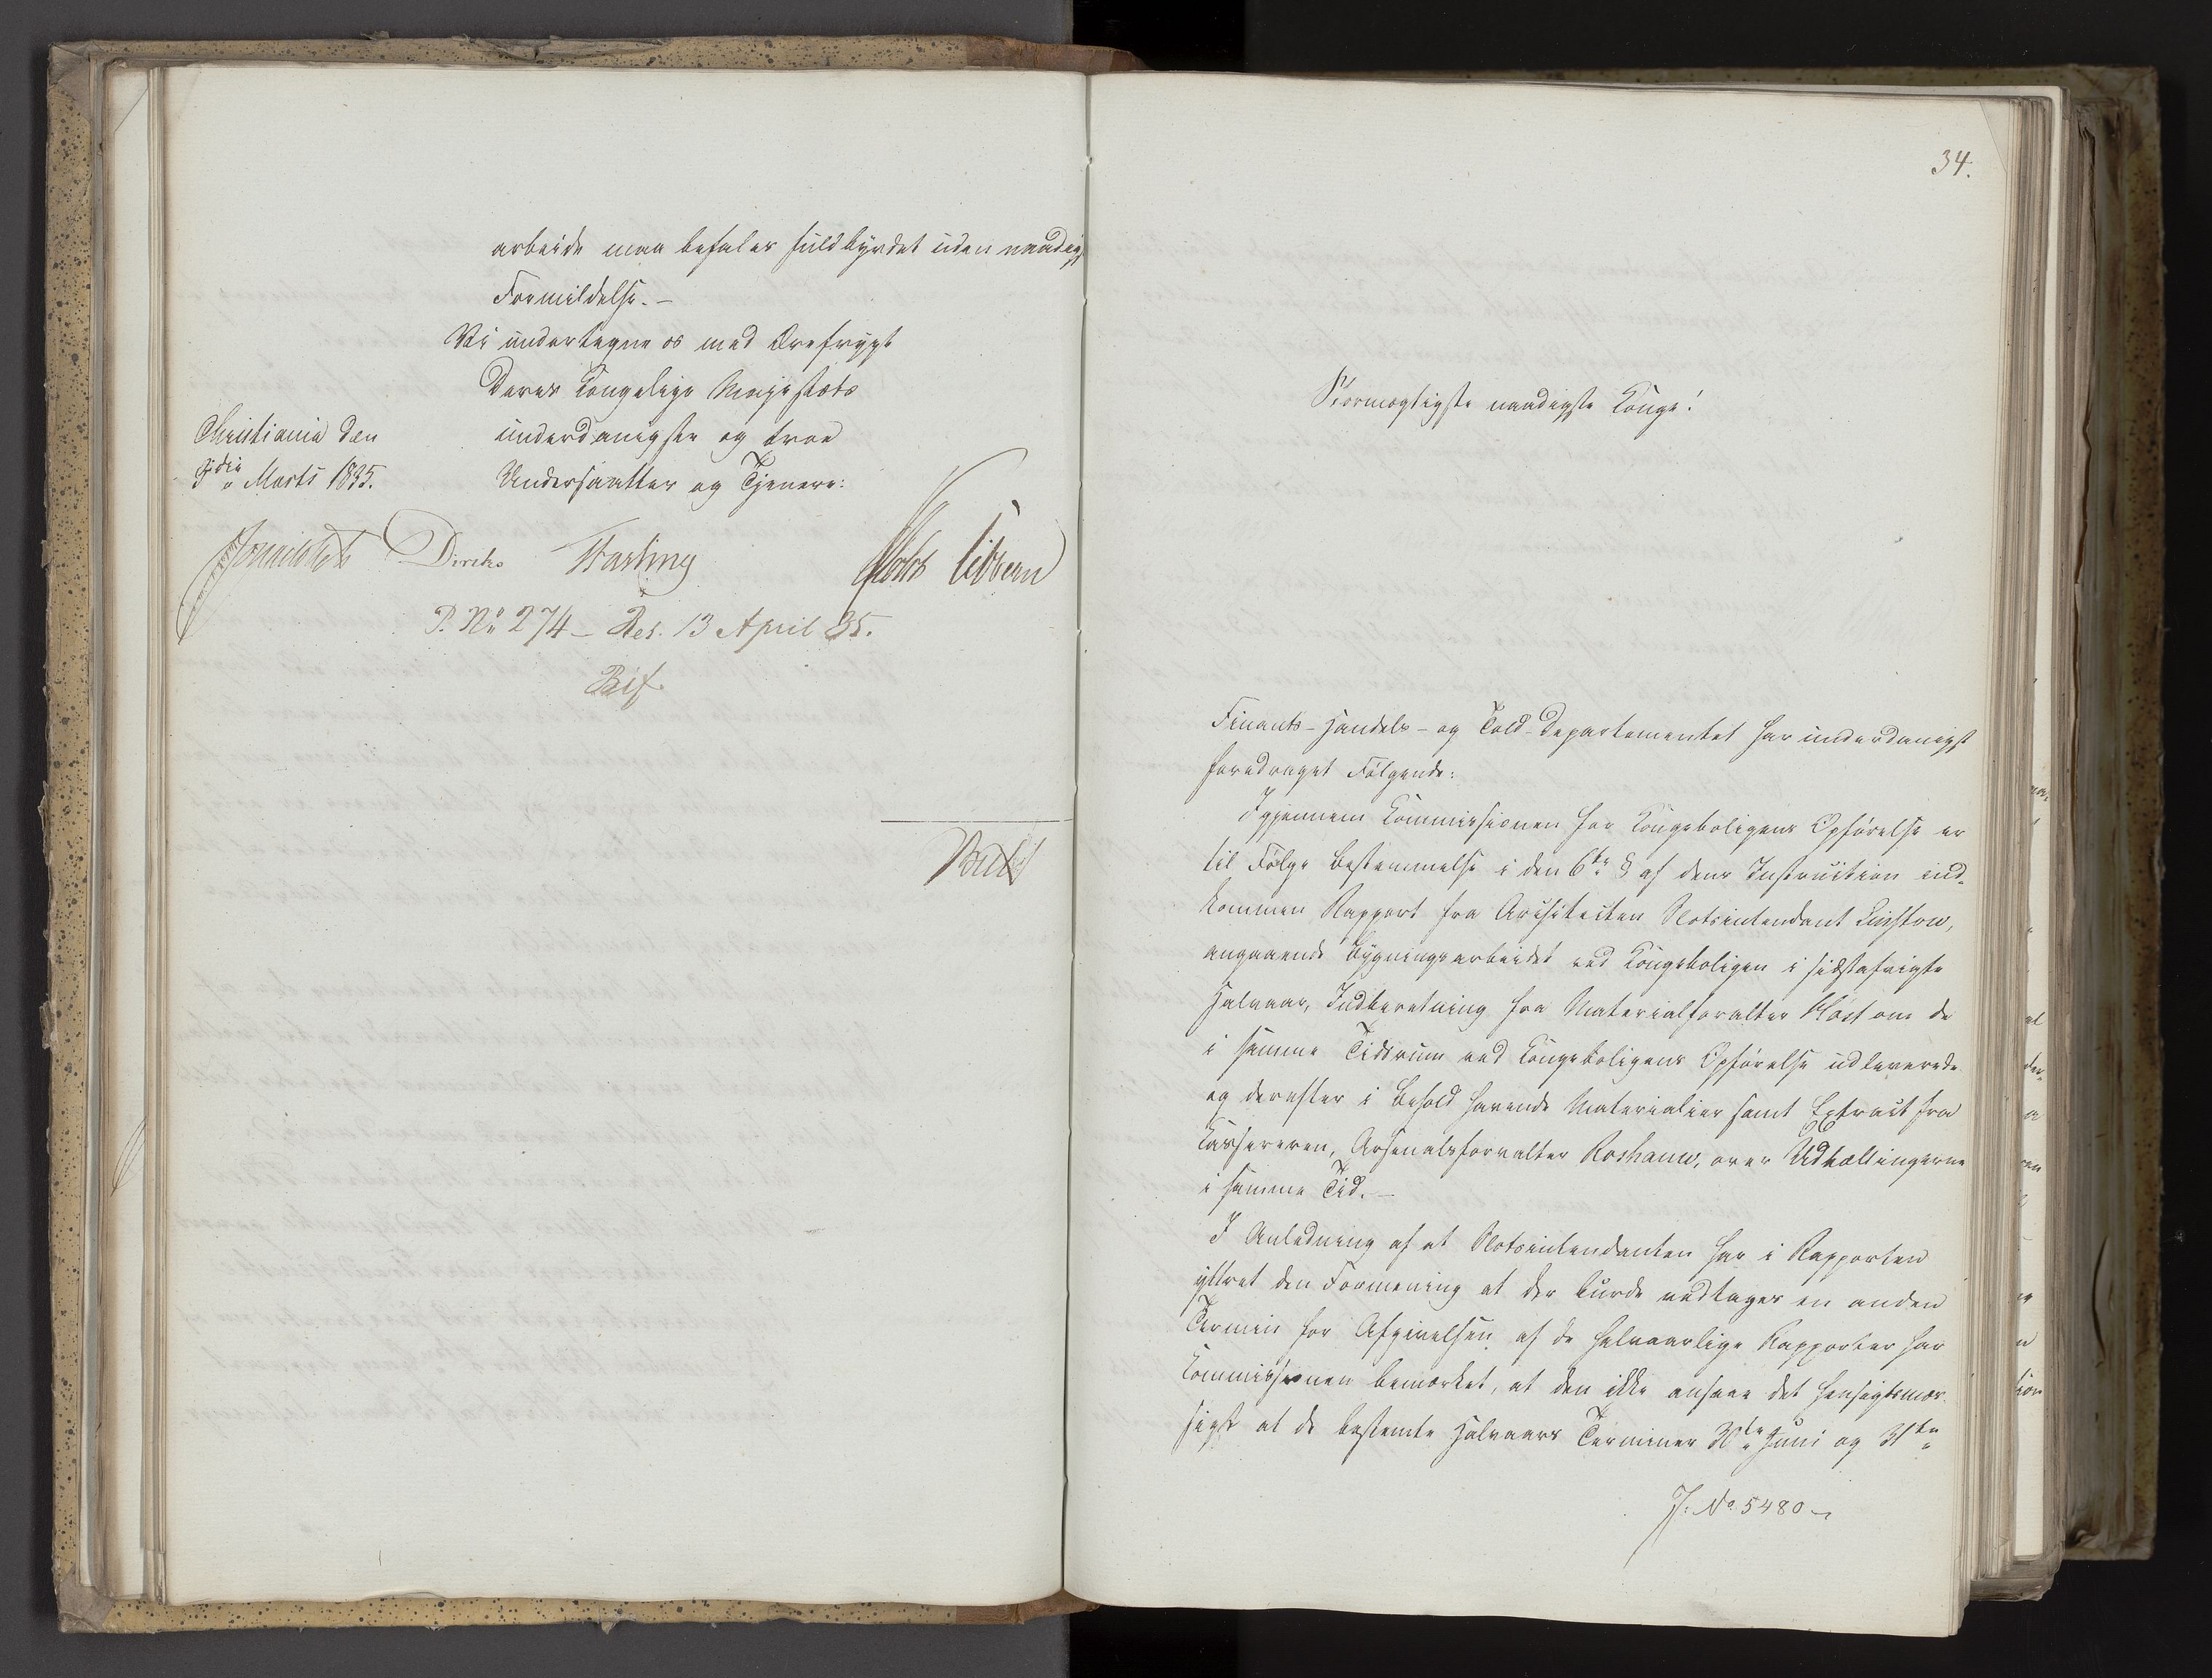 arbeide maa befales fuldbyrdet uden naadigst
Formildelse. –
Vi undertegne os med Ærefrygt
Deres Kongelige Majestæts
underdanigste og troe
Undersaatter og Tjenere:
Christiania den
Marts 1835.
Diriks Fasting Holst Vibe
P. No 274 – Res. 13 April 35.
Bif.
34.
Stormægtigste naadigste Konge!
Finants- Handels- og Told-Departementet har underdanigst
foredraget Følgende:
Igjennem Kommissionen for Kongeboligens Opførelse er
til Følge Bestemmelse i den 6te § af dens Instruction ind-
kommen Rapport fra Architecten Slotsintendant Linstow,
angaaende Bygningsarbeidet ved Kongeboligen i sidstafvigte
Halvaar, Indberetning fra Materialforvalter Høst om de
i samme Tidsrum ved Kongeboligens Opførelse udleverede
og derefter i Behold havende Materialier samt Extract fra
Kassereren, Arsenalsforvalter Roshauw, over Udtællingerne
i samme Tid. –
I Anledning af at Slotsintendanten har i Rapporten
yttret den Formening at der burde vedtages en anden
Termin for Afgivelsen af de halvaarlige Rapporter har
Kommissionen bemærket, at den ikke ansaae det hensigtsmæs-
sigt at de bestemte Halvaars Terminer 30te Juni og 31te
J: No 5480 –